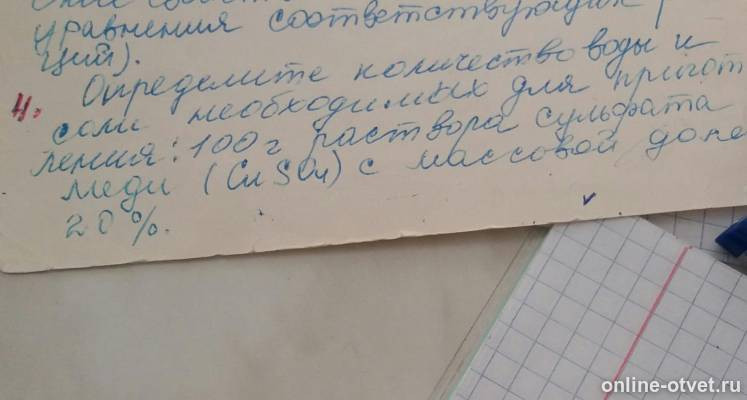 уравнения соответствующих
ций).
4. Определите количество воды и
соли необходимых для пригот
ления: 100 г раствора сульфата
меди (CuSO4) с массовой доле
20%.
online-otvet.ru